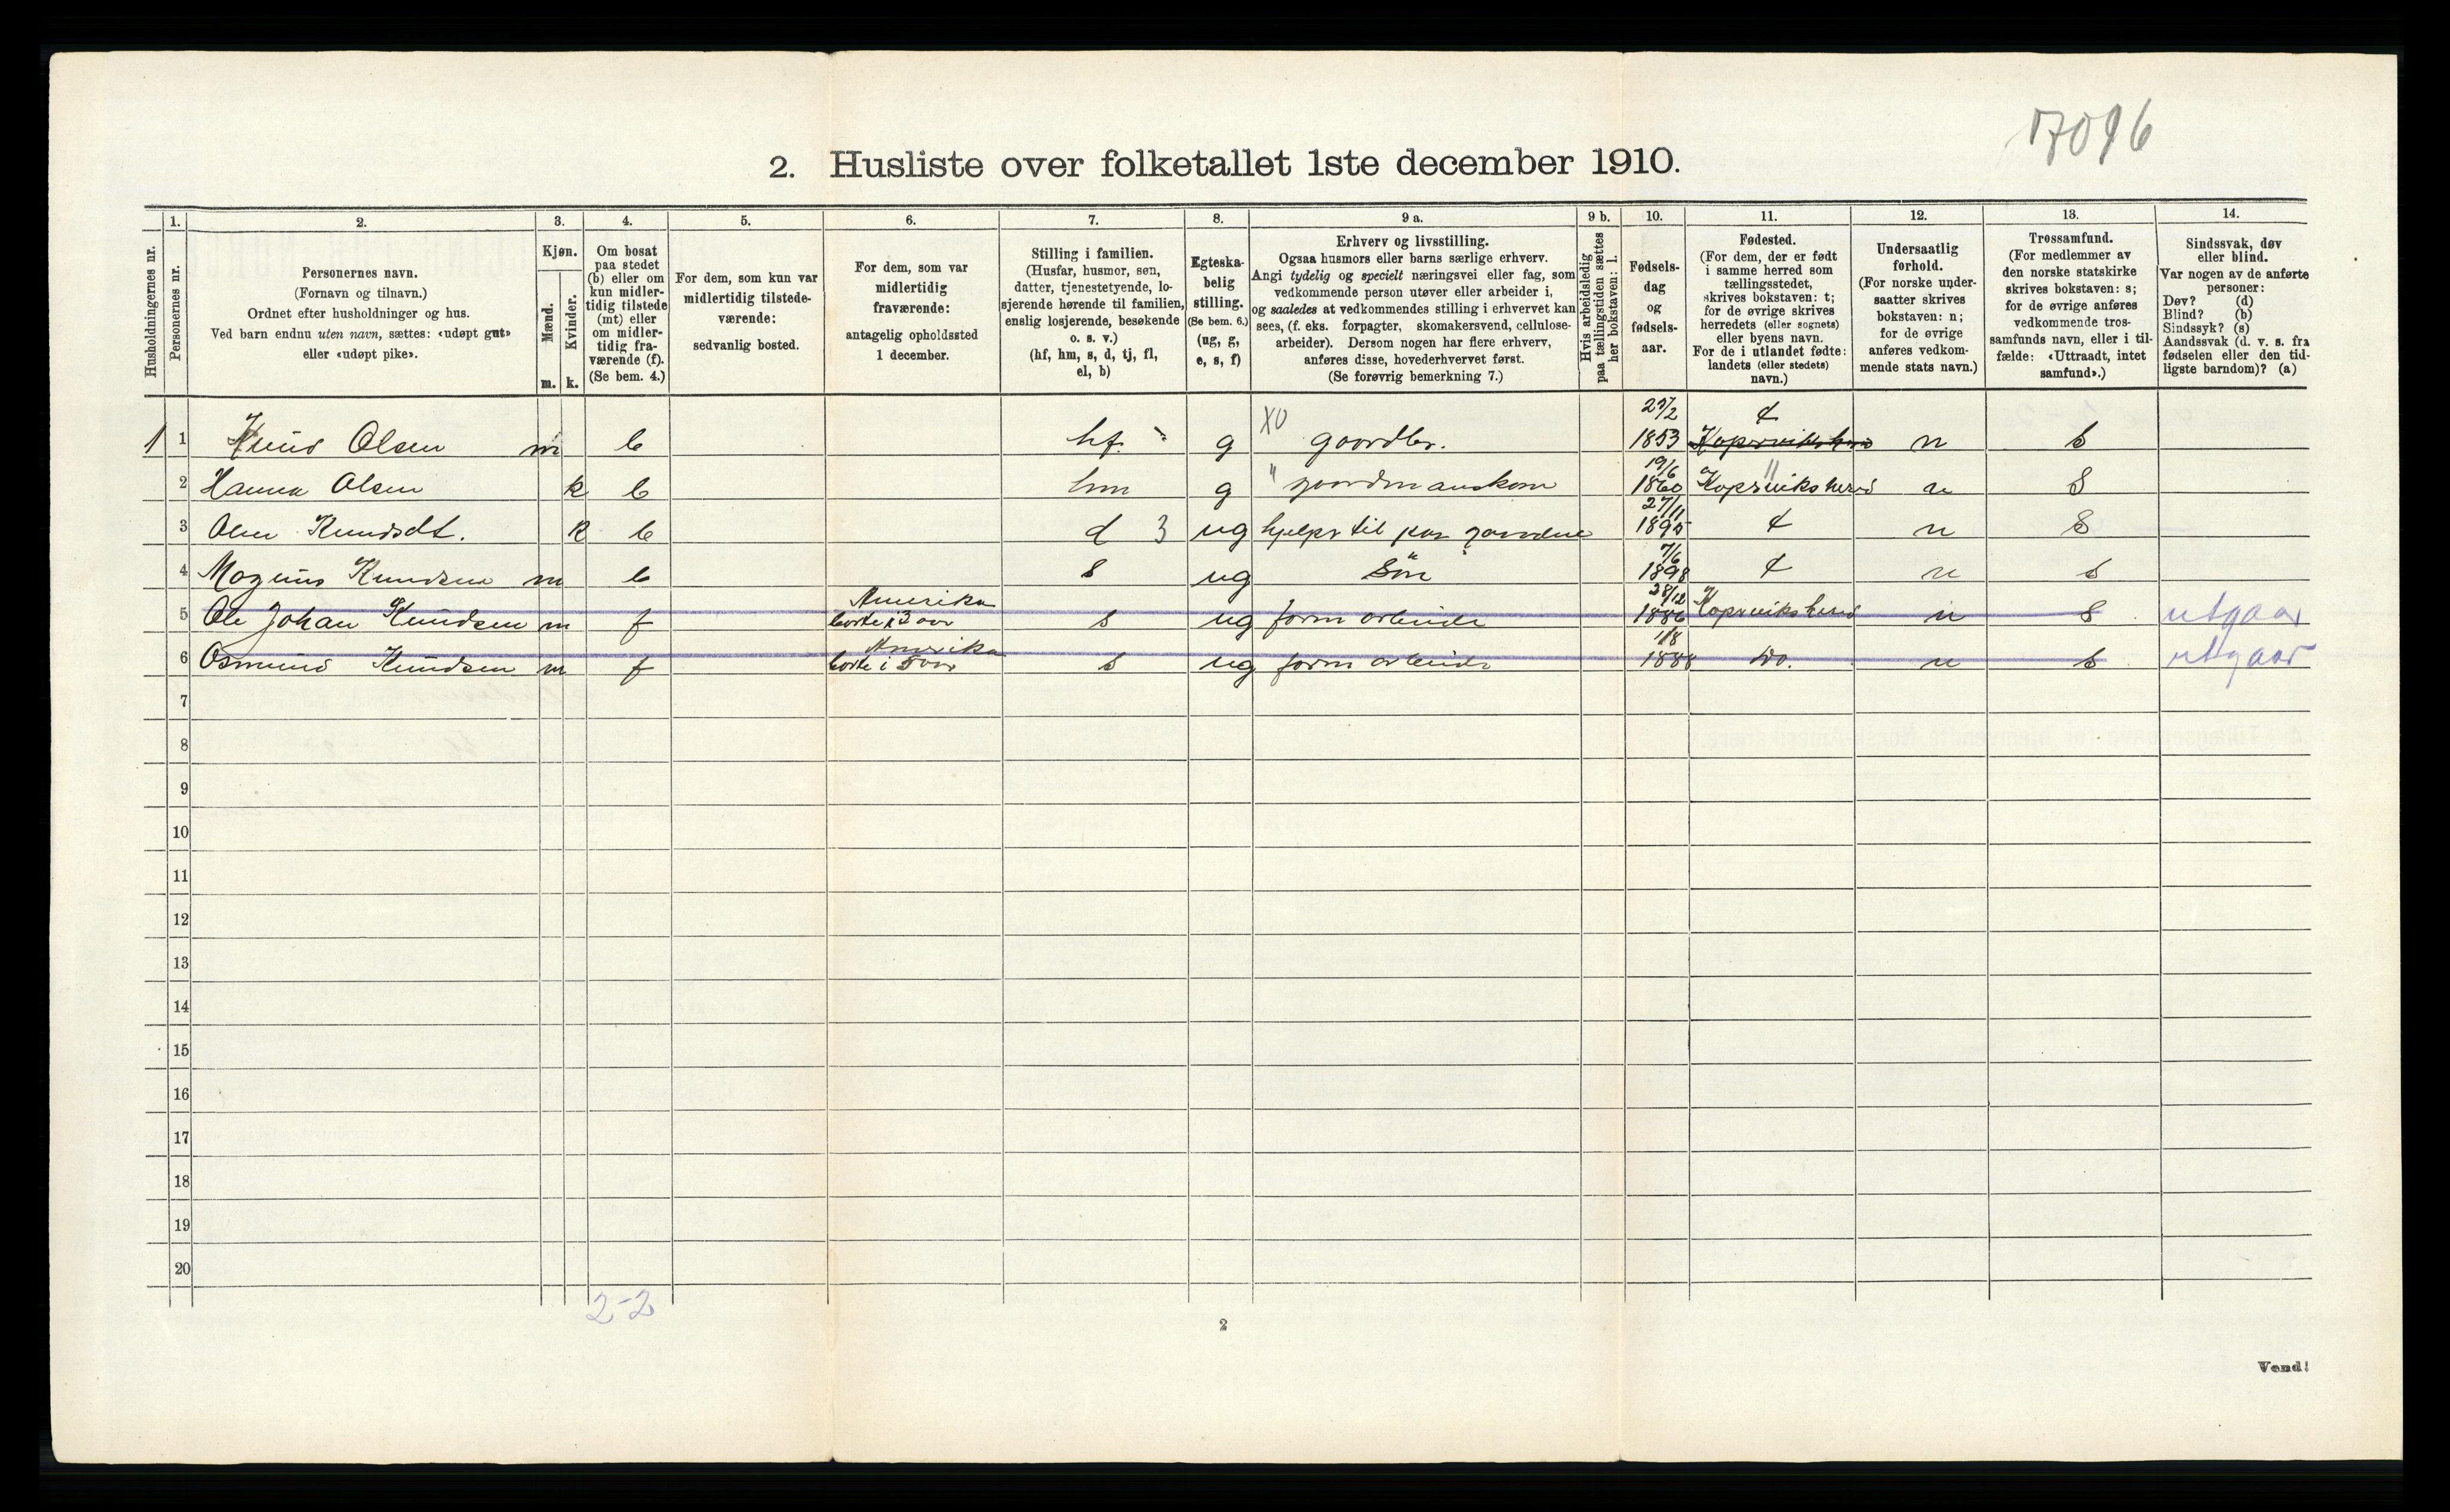 17096
2. Husliste over folketallet 1ste december 1910.
Husholdningernes nr.
1.
Personernes nr.
2.
Personernes navn.
(Fornavn og tilnavn.)
Ordnet efter husholdninger og hus.
Ved barn endnu uten navn, sættes: «udøpt gut»
eller «udøpt pike».
3.
Kjøn.
Mænd.
Kvinder.
m.
k.
4.
Om bosat
paa stedet
(b) eller om
kun midler-
tidig tilstede
(mt) eller
om midler-
tidig fra-
værende (f).
(Se bem. 4.)
5.
For dem, som kun var
midlertidig tilstede-
værende:
sedvanlig bosted.
6.
For dem, som var
midlertidig
fraværende:
antagelig opholdssted
1 december.
7.
Stilling i familien.
(Husfar, husmor, søn,
datter, tjenestetyende, lo-
sjerende hørende til familien,
enslig losjerende, besøkende
o. s. v.)
(hf, hm, s, d, tj, fl,
el, b)
8.
Egteska-
belig
stilling.
(Se bem. 6.)
(ug, g,
e, s, f)
9 a.
Erhverv og livsstilling.
Ogsaa husmors eller barns særlige erhverv.
Angi tydelig og specielt næringsvei eller fag, som
vedkommende person utøver eller arbeider i,
og saaledes at vedkommendes stilling i erhvervet kan
sees, (f. eks. forpagter, skomakersvend, cellulose-
arbeider). Dersom nogen har flere erhverv,
anføres disse, hovederhvervet først.
(Se forøvrig bemerkning 7.)
9 b.
Hvis arbeidsledig
paa tællingstiden sættes
her bokstaven: l.
10.
Fødsels-
dag
og
fødsels-
aar.
11.
Fødested.
(For dem, der er født
i samme herred som
tællingsstedet,
skrives bokstaven: t;
for de øvrige skrives
herredets (eller sognets)
eller byens navn.
For de i utlandet fødte:
landets (eller stedets)
navn.)
12.
Undersaatlig
forhold.
(For norske under-
saatter skrives
bokstaven: n;
for de øvrige
anføres vedkom-
mende stats navn.)
13.
Trossamfund.
(For medlemmer av
den norske statskirke
skrives bokstaven: s;
for de øvrige anføres
vedkommende tros-
samfunds navn, eller i til-
fælde: «Uttraadt, intet
samfund».)
14.
Sindssvak, døv
eller blind.
Var nogen av de anførte
personer:
Døv? (d)
Blind? (b)
Sindssyk? (s)
Aandssvak (d. v. s. fra
fødselen eller den tid-
ligste barndom)? (a)
1 1 Knud Olsen m b hf. g X0 gaardbr. 27/2 1853 t n s
2 Hanna Olsen k b hm g " gaardmanskone 19/6 1860 Koperviks herred n S
3 Knudsdt. k b d 3 ug hjelper til paa gaarden 27/11 1895 t n S
4 Magnus Knudsen m b s ug Søn 7/6 1898 t n s
5 Ole Johan Knudsen m f Amerika borte i 3 aar s ug farm arbeide 28/12 1886 Kopervik herred n S utgaar
6 Osmund Knudsen m f Amerika borte i 5 aar s ug farm arbeide 1/8 1888 Do. n s utgaar
7
8
9
10
11
12
13
14
15
16
17
18
19
20
2-2
2
Vend!